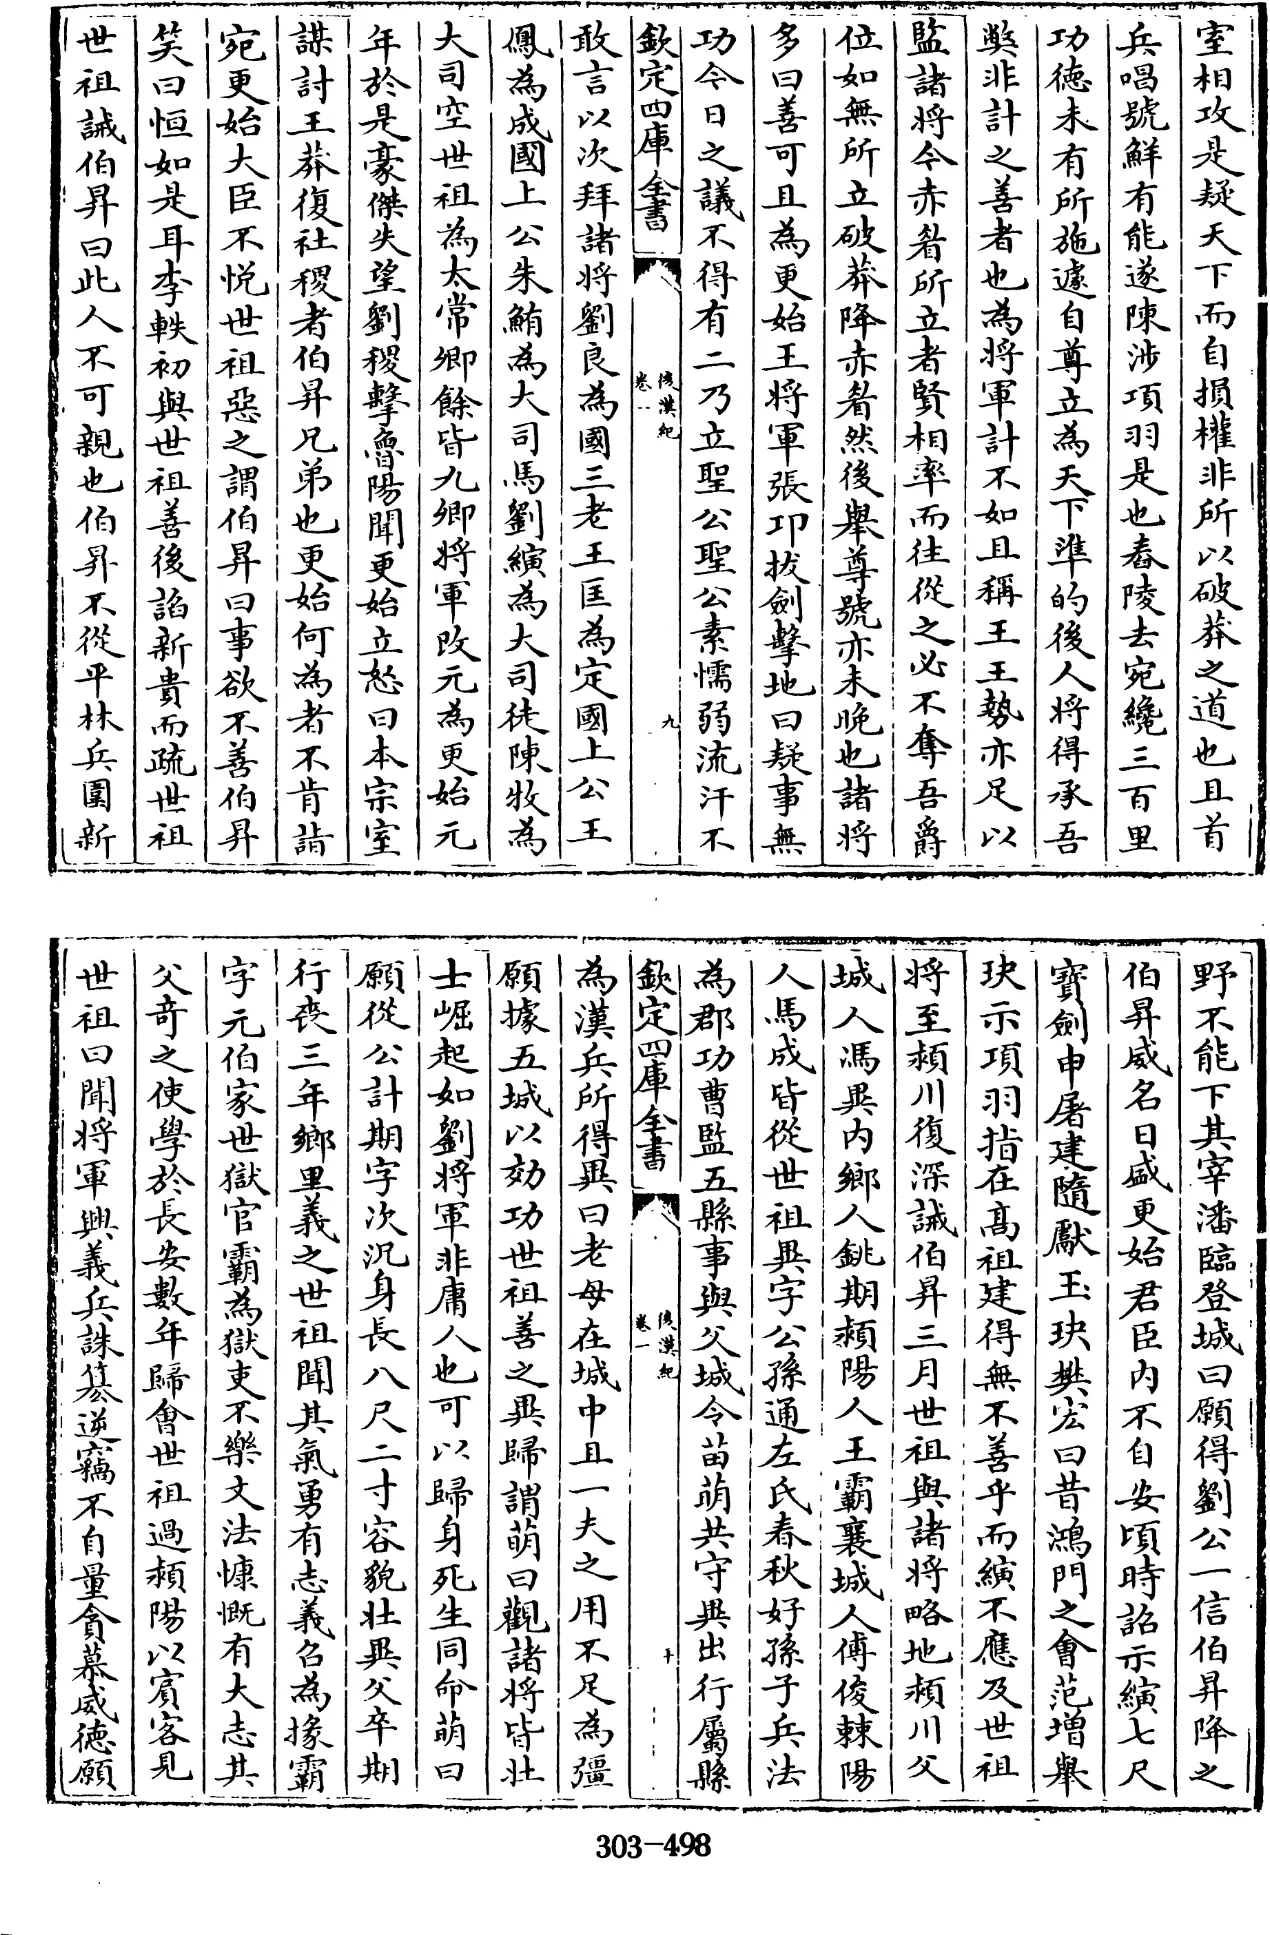 室相攻是疑天下而自損權非所以破莽之道也且首
兵唱號鮮有能遂陳涉項羽是也舂陵去宛纔三百里
功德未有所施遽自尊立為天下準的後人將得承吾
獘非計之善者也為將軍計不如且稱王王勢亦足以
監諸將令赤眉所立者賢相率而往從之必不奪吾爵
位如無所立破莽降赤眉然後舉尊號亦未晚也諸將
多曰善可且為更始王將軍張卬拔劍擊地曰疑事無
功今日之議不得有二乃立聖公聖公素懦弱流汗不
欽定四庫全書
後漢紀
卷一
九
敢言以次拜諸將劉良為國三老王匡為定國上公王
鳳為成國上公朱鮪為大司馬劉縯為大司徒陳牧為
大司空世祖為太常卿餘皆九卿將軍改元為更始元
年於是豪傑失望劉稷擊魯陽聞更始立怒曰本宗室
謀討王莽復社稷者伯昇兄弟也更始何為者不肯詣
宛更始大臣不悅世祖惡之謂伯昇曰事欲不善伯昇
笑曰恒如是耳李軼初與世祖善後諂新貴而疏世祖
世祖誡伯昇曰此人不可親也伯昇不從平林兵圍新
野不能下其宰潘臨登城曰願得劉公一信伯昇降之
伯昇威名日盛更始君臣內不自安頃時詔示縯七尺
寳劍申屠建隨獻玉玦樊宏曰昔鴻門之會范增舉
玦示項羽指在高祖建得無不善乎而縯不應及世祖
將至潁川復深誡伯昇三月世祖與諸將略地潁川父
城人馮異內鄉人銚期潁陽人王霸襄城人傅俊棘陽
人馬成皆從世祖異字公孫通左氏春秋好孫子兵法
為郡功曹監五縣事與父城令苗萌共守異出行屬縣
欽定四庫全書
後漢紀
卷一
十
為漢兵所得異曰老母在城中且一夫之用不足為彊
願據五城以効功世祖善之異歸謂萌曰觀諸將皆壯
士崛起如劉將軍非庸人也可以歸身死生同命萌曰
願從公計期字次況身長八尺二寸容貌壯異父卒期
行喪三年鄉里義之世祖聞其氣勇有志義召為掾霸
字元伯家世獄官霸為獄吏不樂文法慷慨有大志其
父奇之使學於長安數年歸會世祖過潁陽以賓客見
世祖曰聞將軍興義兵誅篡逆竊不自量貪慕威德願
303-498